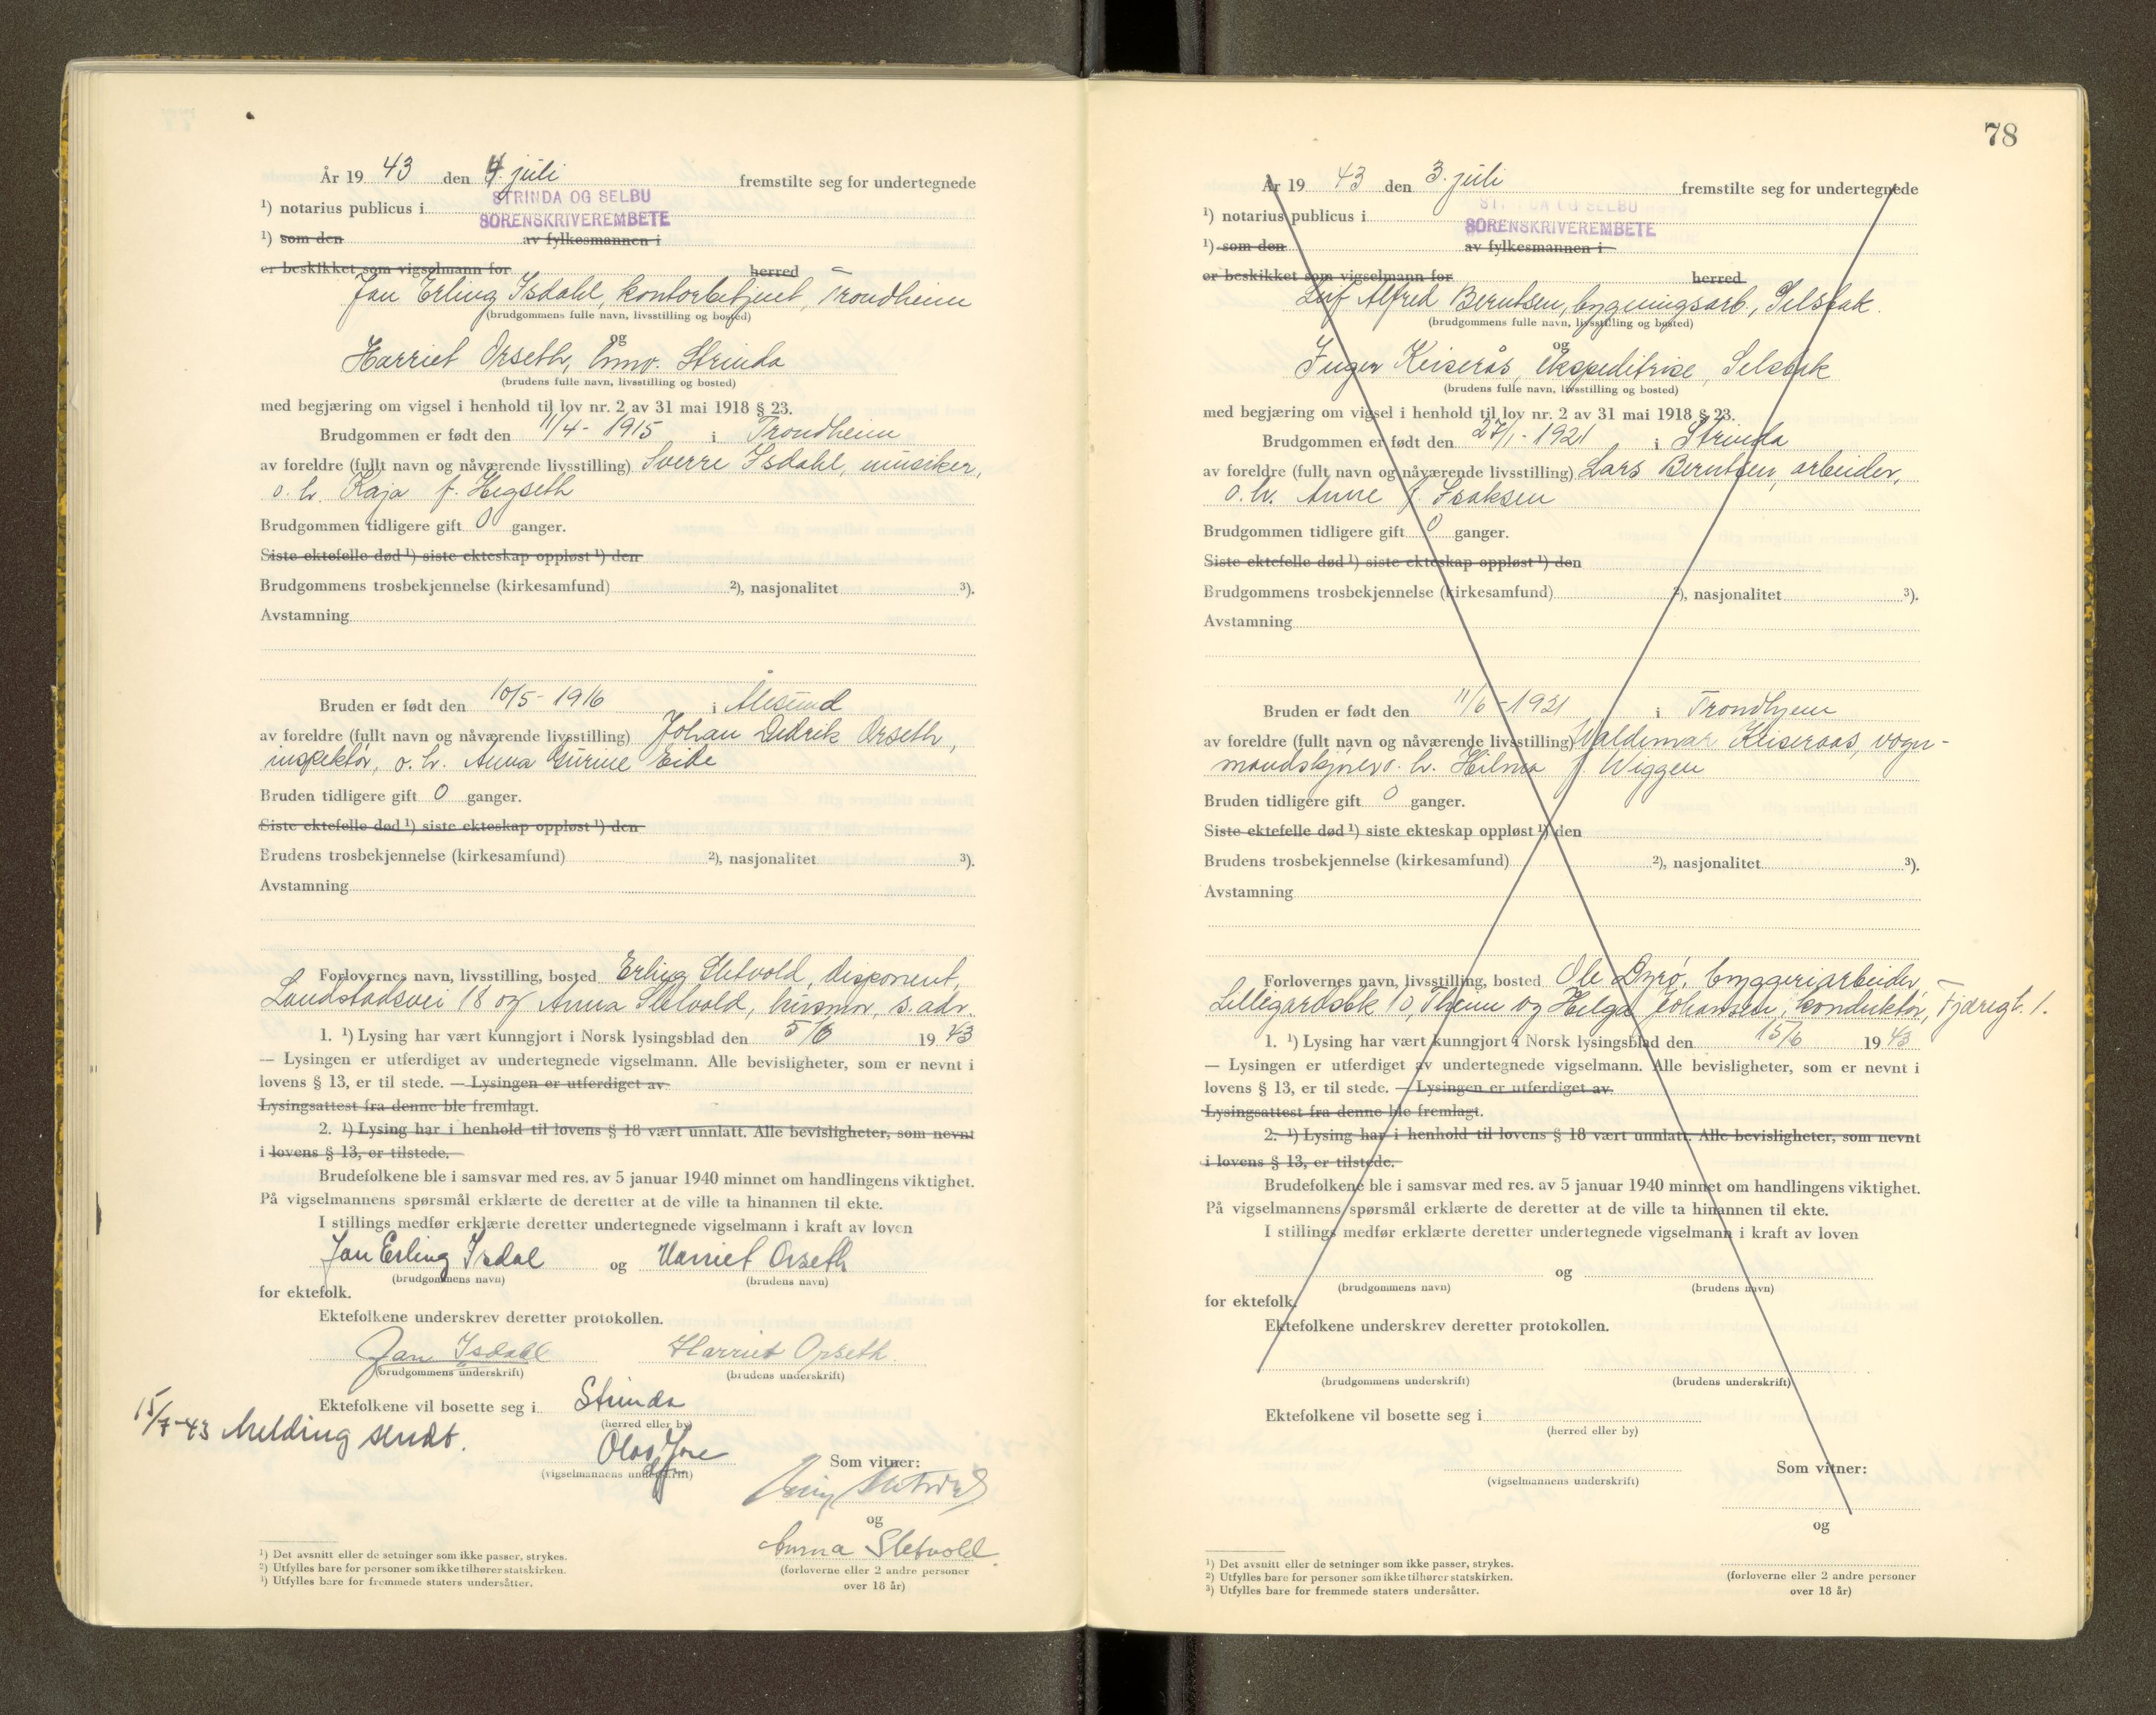 År 19 43 den 4. juli fremstilte seg for undertegnede
¹) notarius publicus i STRINDA OG SELBU
SORENSKRIVEREMBETE
¹) som den av fylkesmannen i
er beskikket som vigselmann for herred
Jan Erling Isdahl, kontorbetjent, Trondheim
(brudgommens fulle navn, livsstilling og bosted)
og
Harriet Orseth, Strinda
(brudens fulle navn, livsstilling og bosted)
med begjæring om vigsel i henhold til lov nr. 2 av 31 mai 1918 § 23.
Brudgommen er født den 11/4 - 1915 i Trondheim
av foreldre (fullt navn og nåværende livsstilling) Sverre Isdahl, musiker,
o. h. Kaja f. Hegseth
Brudgommen tidligere gift 0 ganger.
Siste ektefelle død ¹) siste ekteskap oppløst ¹) den
Brudgommens trosbekjennelse (kirkesamfund) ²), nasjonalitet ³).
Avstamning
Bruden er født den 10/5 - 1916 i Ålesund
av foreldre (fullt navn og nåværende livsstilling) Johan Didrik Orseth,
inspektør, o. h. Anna Gurine Eide
Bruden tidligere gift 0 ganger.
Siste ektefelle død ¹) siste ekteskap oppløst ¹) den
Brudens trosbekjennelse (kirkesamfund) ²), nasjonalitet ³).
Avstamning
Forlovernes navn, livsstilling, bosted Erling Sletvold, disponent,
Landstadsvei 18 og Anna Sletvold, husmor, s. adr.
1. ¹) Lysing har vært kunngjort i Norsk lysingsblad den 5/6 19 43
— Lysingen er utferdiget av undertegnede vigselmann. Alle bevisligheter, som er nevnt i
lovens § 13, er til stede. — Lysingen er utferdiget av
Lysingsattest fra denne ble fremlagt.
2. ¹) Lysing har i henhold til lovens § 18 vært unnlatt. Alle bevisligheter, som nevnt
i lovens § 13, er tilstede.
Brudefolkene ble i samsvar med res. av 5 januar 1940 minnet om handlingens viktighet.
På vigselmannens spørsmål erklærte de deretter at de ville ta hinannen til ekte.
I stillings medfør erklærte deretter undertegnede vigselmann i kraft av loven
Jan Erling Isdal og Harriet Orseth
(brudgommens navn) (brudens navn)
for ektefolk.
Ektefolkene underskrev deretter protokollen.
Jan Isdahl Harriet Orseth
(brudgommens underskrift) (brudens underskrift)
Ektefolkene vil bosette seg i Strinda
(herred eller by)
15/7-43 Melding sendt.
Olav
(vigselmannens underskrift)
Som vitner:
og
Anna Sletvold
(forloverne eller 2 andre personer
over 18 år)
¹) Det avsnitt eller de setninger som ikke passer, strykes.
²) Utfylles bare for personer som ikke tilhører statskirken.
³) Utfylles bare for fremmede staters undersåtter.
78
År 19 43 den 3. juli fremstilte seg for undertegnede
¹) notarius publicus i STRINDA OG SELBU
SORENSKRIVEREMBETE
¹) som den av fylkesmannen i
er beskikket som vigselmann for herred
Leif Alfred Berntsen, bygningsarb, Selsbak.
(brudgommens fulle navn, livsstilling og bosted)
og
Inger Keiserås, ekspeditrise, Selsbak
(brudens fulle navn, livsstilling og bosted)
med begjæring om vigsel i henhold til lov nr. 2 av 31 mai 1918 § 23.
Brudgommen er født den 27/1 - 1921 i Strinda
av foreldre (fullt navn og nåværende livsstilling) Lars Berntsen, arbeider,
o. h. Anne f. Isaksen
Brudgommen tidligere gift 0 ganger.
Siste ektefelle død ¹) siste ekteskap oppløst ¹) den
Brudgommens trosbekjennelse (kirkesamfund) ²), nasjonalitet ³).
Avstamning
Bruden er født den 11/6 - 1921 i Trondhjem
av foreldre (fullt navn og nåværende livsstilling) Waldemar Keiseraas, vogn-
mandskjører o. h. Hilma f. Wiggen
Bruden tidligere gift 0 ganger.
Siste ektefelle død ¹) siste ekteskap oppløst ¹) den
Brudens trosbekjennelse (kirkesamfund) ²), nasjonalitet ³).
Avstamning
Forlovernes navn, livsstilling, bosted Ole Dyrø, bryggeriarbeider,
Lillegårdsbk 10, Thjem og Helga Johansen, konduktør, Fjæregt. 1.
1. ¹) Lysing har vært kunngjort i Norsk lysingsblad den 15/6 19 43
— Lysingen er utferdiget av undertegnede vigselmann. Alle bevisligheter, som er nevnt i
lovens § 13, er til stede. — Lysingen er utferdiget av
Lysingsattest fra denne ble fremlagt.
2. ¹) Lysing har i henhold til lovens § 18 vært unnlatt. Alle bevisligheter, som nevnt
i lovens § 13, er tilstede.
Brudefolkene ble i samsvar med res. av 5 januar 1940 minnet om handlingens viktighet.
På vigselmannens spørsmål erklærte de deretter at de ville ta hinannen til ekte.
I stillings medfør erklærte deretter undertegnede vigselmann i kraft av loven
og
(brudgommens navn) (brudens navn)
for ektefolk.
Ektefolkene underskrev deretter protokollen.
(brudgommens underskrift) (brudens underskrift)
Ektefolkene vil bosette seg i
(herred eller by)
(vigselmannens underskrift)
Som vitner:
og
(forloverne eller 2 andre personer
over 18 år)
¹) Det avsnitt eller de setninger som ikke passer, strykes.
²) Utfylles bare for personer som ikke tilhører statskirken.
³) Utfylles bare for fremmede staters undersåtter.